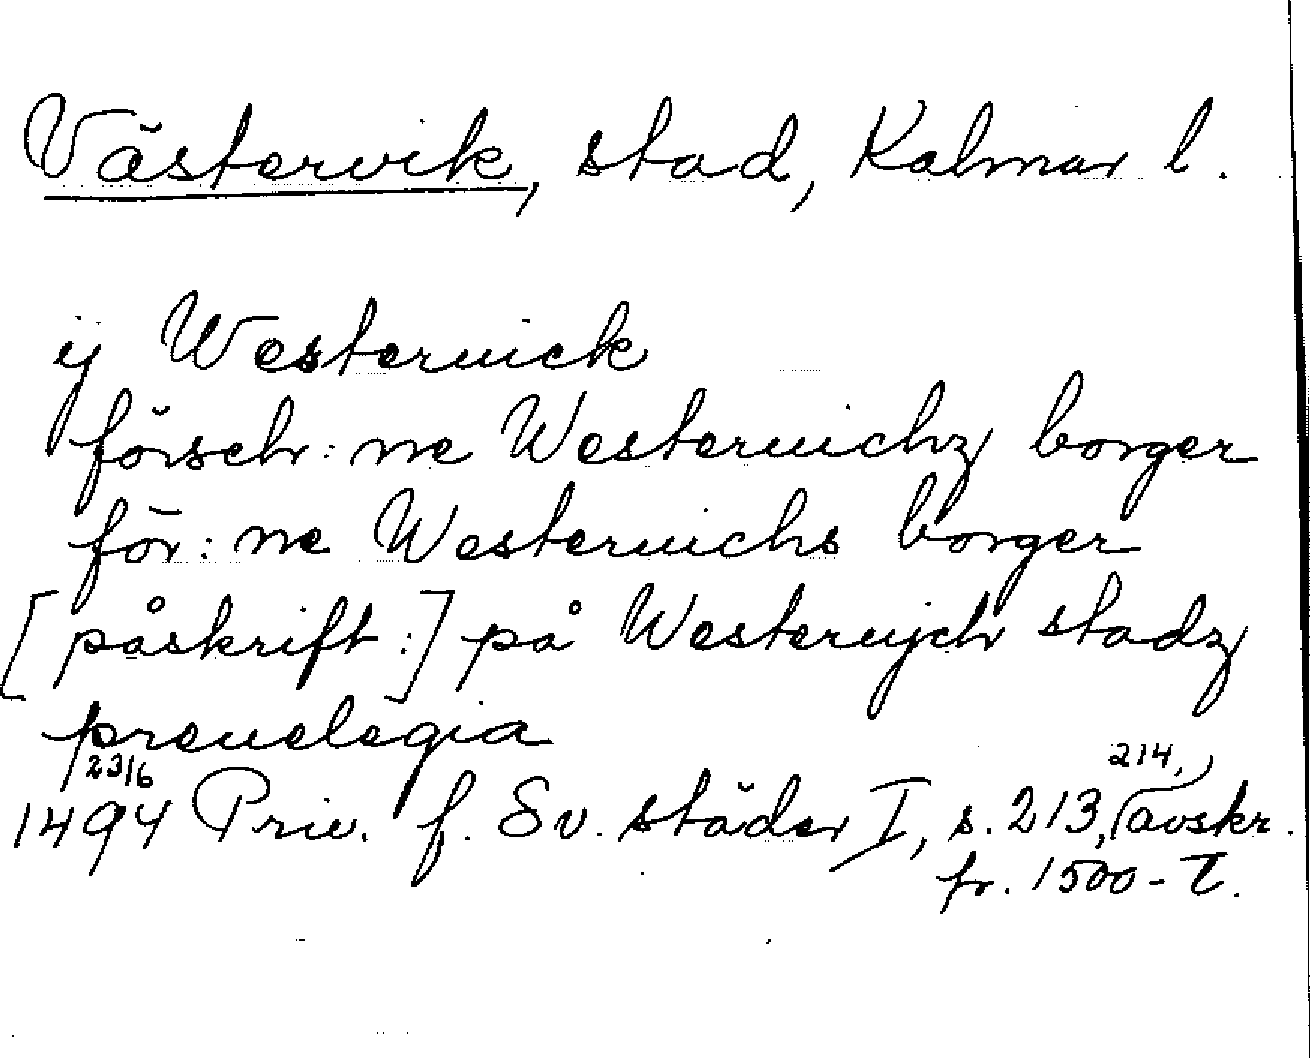 Västervik, stad, Kalmar l.
ij Westerwick
försch: ne Westeruichz borger
för: ne Westeruichs borger
[påskrift:] på Westerujch stadz
preuelegia
1494 23/6 Priv. f. Sv. städer I, s. 213, 214, avskr.
fr. 1500-t.